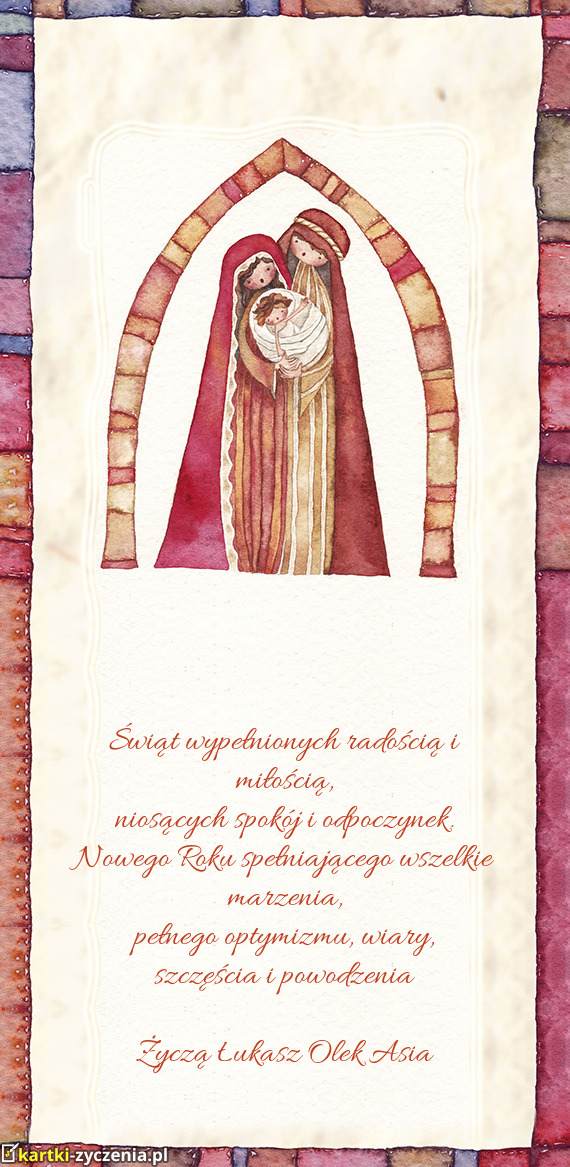 Świąt wypełnionych radością i
miłością,
niosących spokój i odpoczynek.
Nowego Roku spełniającego wszelkie
marzenia,
pełnego optymizmu, wiary,
szczęścia i powodzenia
Życzą Łukasz Olek Asia
kartki-zyczenia.pl